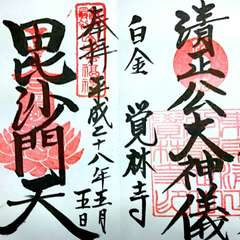 清正公大神儀
白金 覚林寺
奉拝 平成二十八年五月
五日
毘沙門天